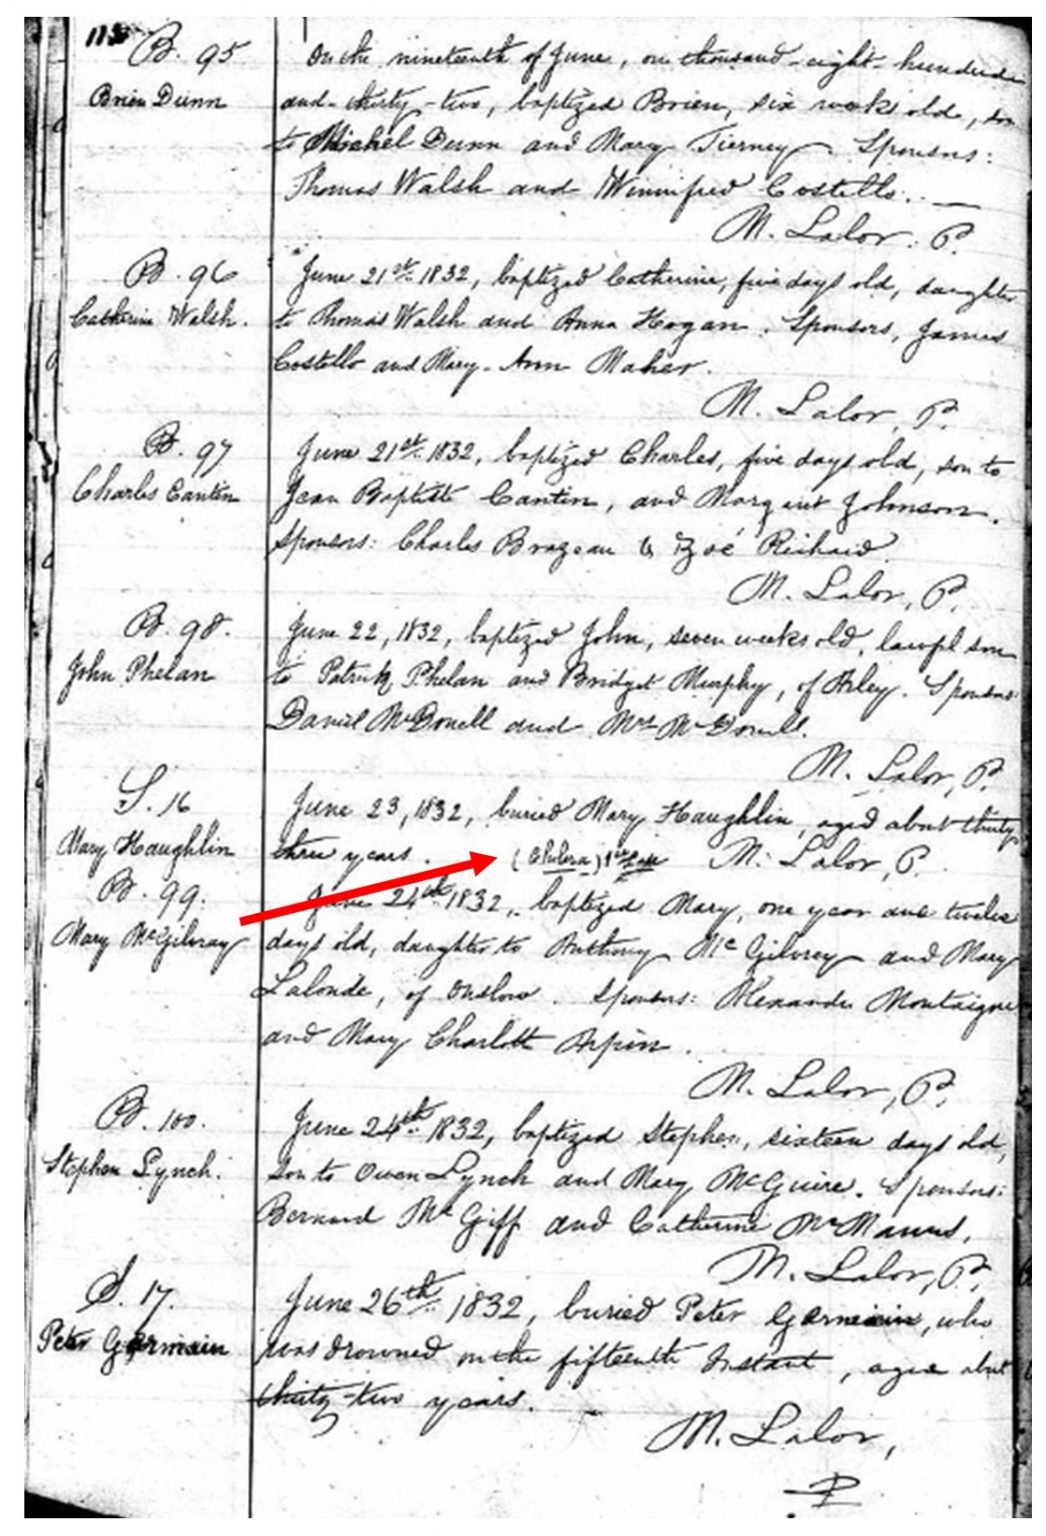 113
B. 95
Brien Dunn
On the nineteenth of June, one thousand-eight-hundred
and-thirty-two, baptized Brien, six weeks old, son
to Michel Dunn and Mary Tierney. Sponsors:
Thomas Walsh and Winnifred Costello.
M. Lalor. P.
B. 96
Catherine Walsh.
June 21st. 1832, baptized Catherine, five days old, daughter
to Thomas Walsh and Anna Hogan. Sponsors, James
Costello and Mary-Ann Maher.
M. Lalor, P.
B. 97
Charles Cantin
June 21st. 1832, baptized Charles, five days old, son to
Jean Baptiste Cantin, and Margaret Johnson.
Sponsors: Charles Brazeau & Zoé Richard.
M. Lalor, P.
B. 98.
John Phelan
June 22, 1832, baptized John, seven weeks old, lawfl son
to Patrick Phelan and Bridget Murphy, of Huley. Sponsors:
Daniel McDonell and Mrs McDonell.
M. Lalor, P.
S. 16
Mary Haughlin
June 23, 1832, buried Mary Haughlin, aged about thirty
three years. (Cholera) 1st Case M. Lalor, P.
B. 99.
Mary McGilvray
June 24th 1832, baptized Mary, one year and twelve
days old, daughter to Anthony McGilvrey and Mary
Lalonde, of Onslow. Sponsors: Alexander Montaigne
and Mary Charlott Arpin.
M. Lalor, P.
B. 100.
Stephen Lynch.
June 24th. 1832, baptized Stephen, sixteen days old,
son to Owen Lynch and Mary McGuire. Sponsors:
Bernard McGiff and Catherine McManus.
M. Lalor, P.
S. 17.
Peter Germain
June 26th. 1832, buried Peter Germain, who
was drowned on the fifteenth Instant, aged abut
thirty-two years.
M. Lalor,
P